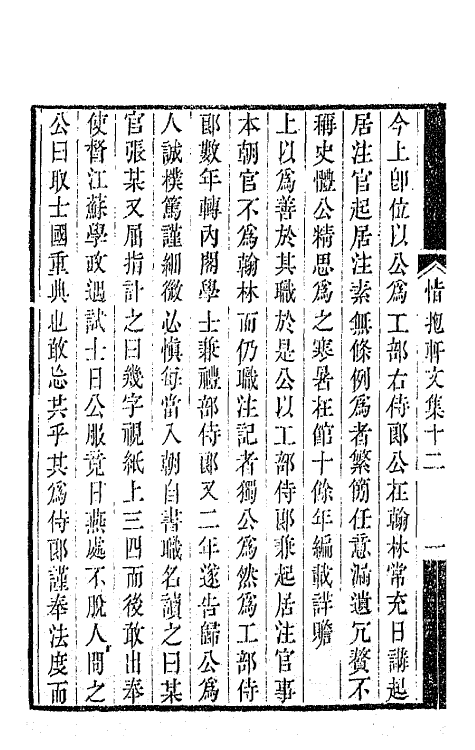 惜抱軒文集十二
一
今上卽位以公爲工部右侍郞公在翰林常充日講起
居注官起居注素無條例爲者繁簡任意漏遺冗贅不
稱史體公精思爲之寒暑在館十餘年編載詳贍
上以爲善於其職於是公以工部侍郞兼起居注官事
本朝官不爲翰林而仍職注記者獨公爲然爲工部侍
郞數年轉內閣學士兼禮部侍郞又二年遂告歸公爲
人誠樸篤謹細微必愼每當入朝自書職名讀之曰某
官張某又屈指計之曰幾字視紙上三四而後敢出奉
使督江蘇學政遇試士日公服竟日燕處不脫人問之
公曰取士國重典也敢忘共乎其爲侍郞謹奉法度而